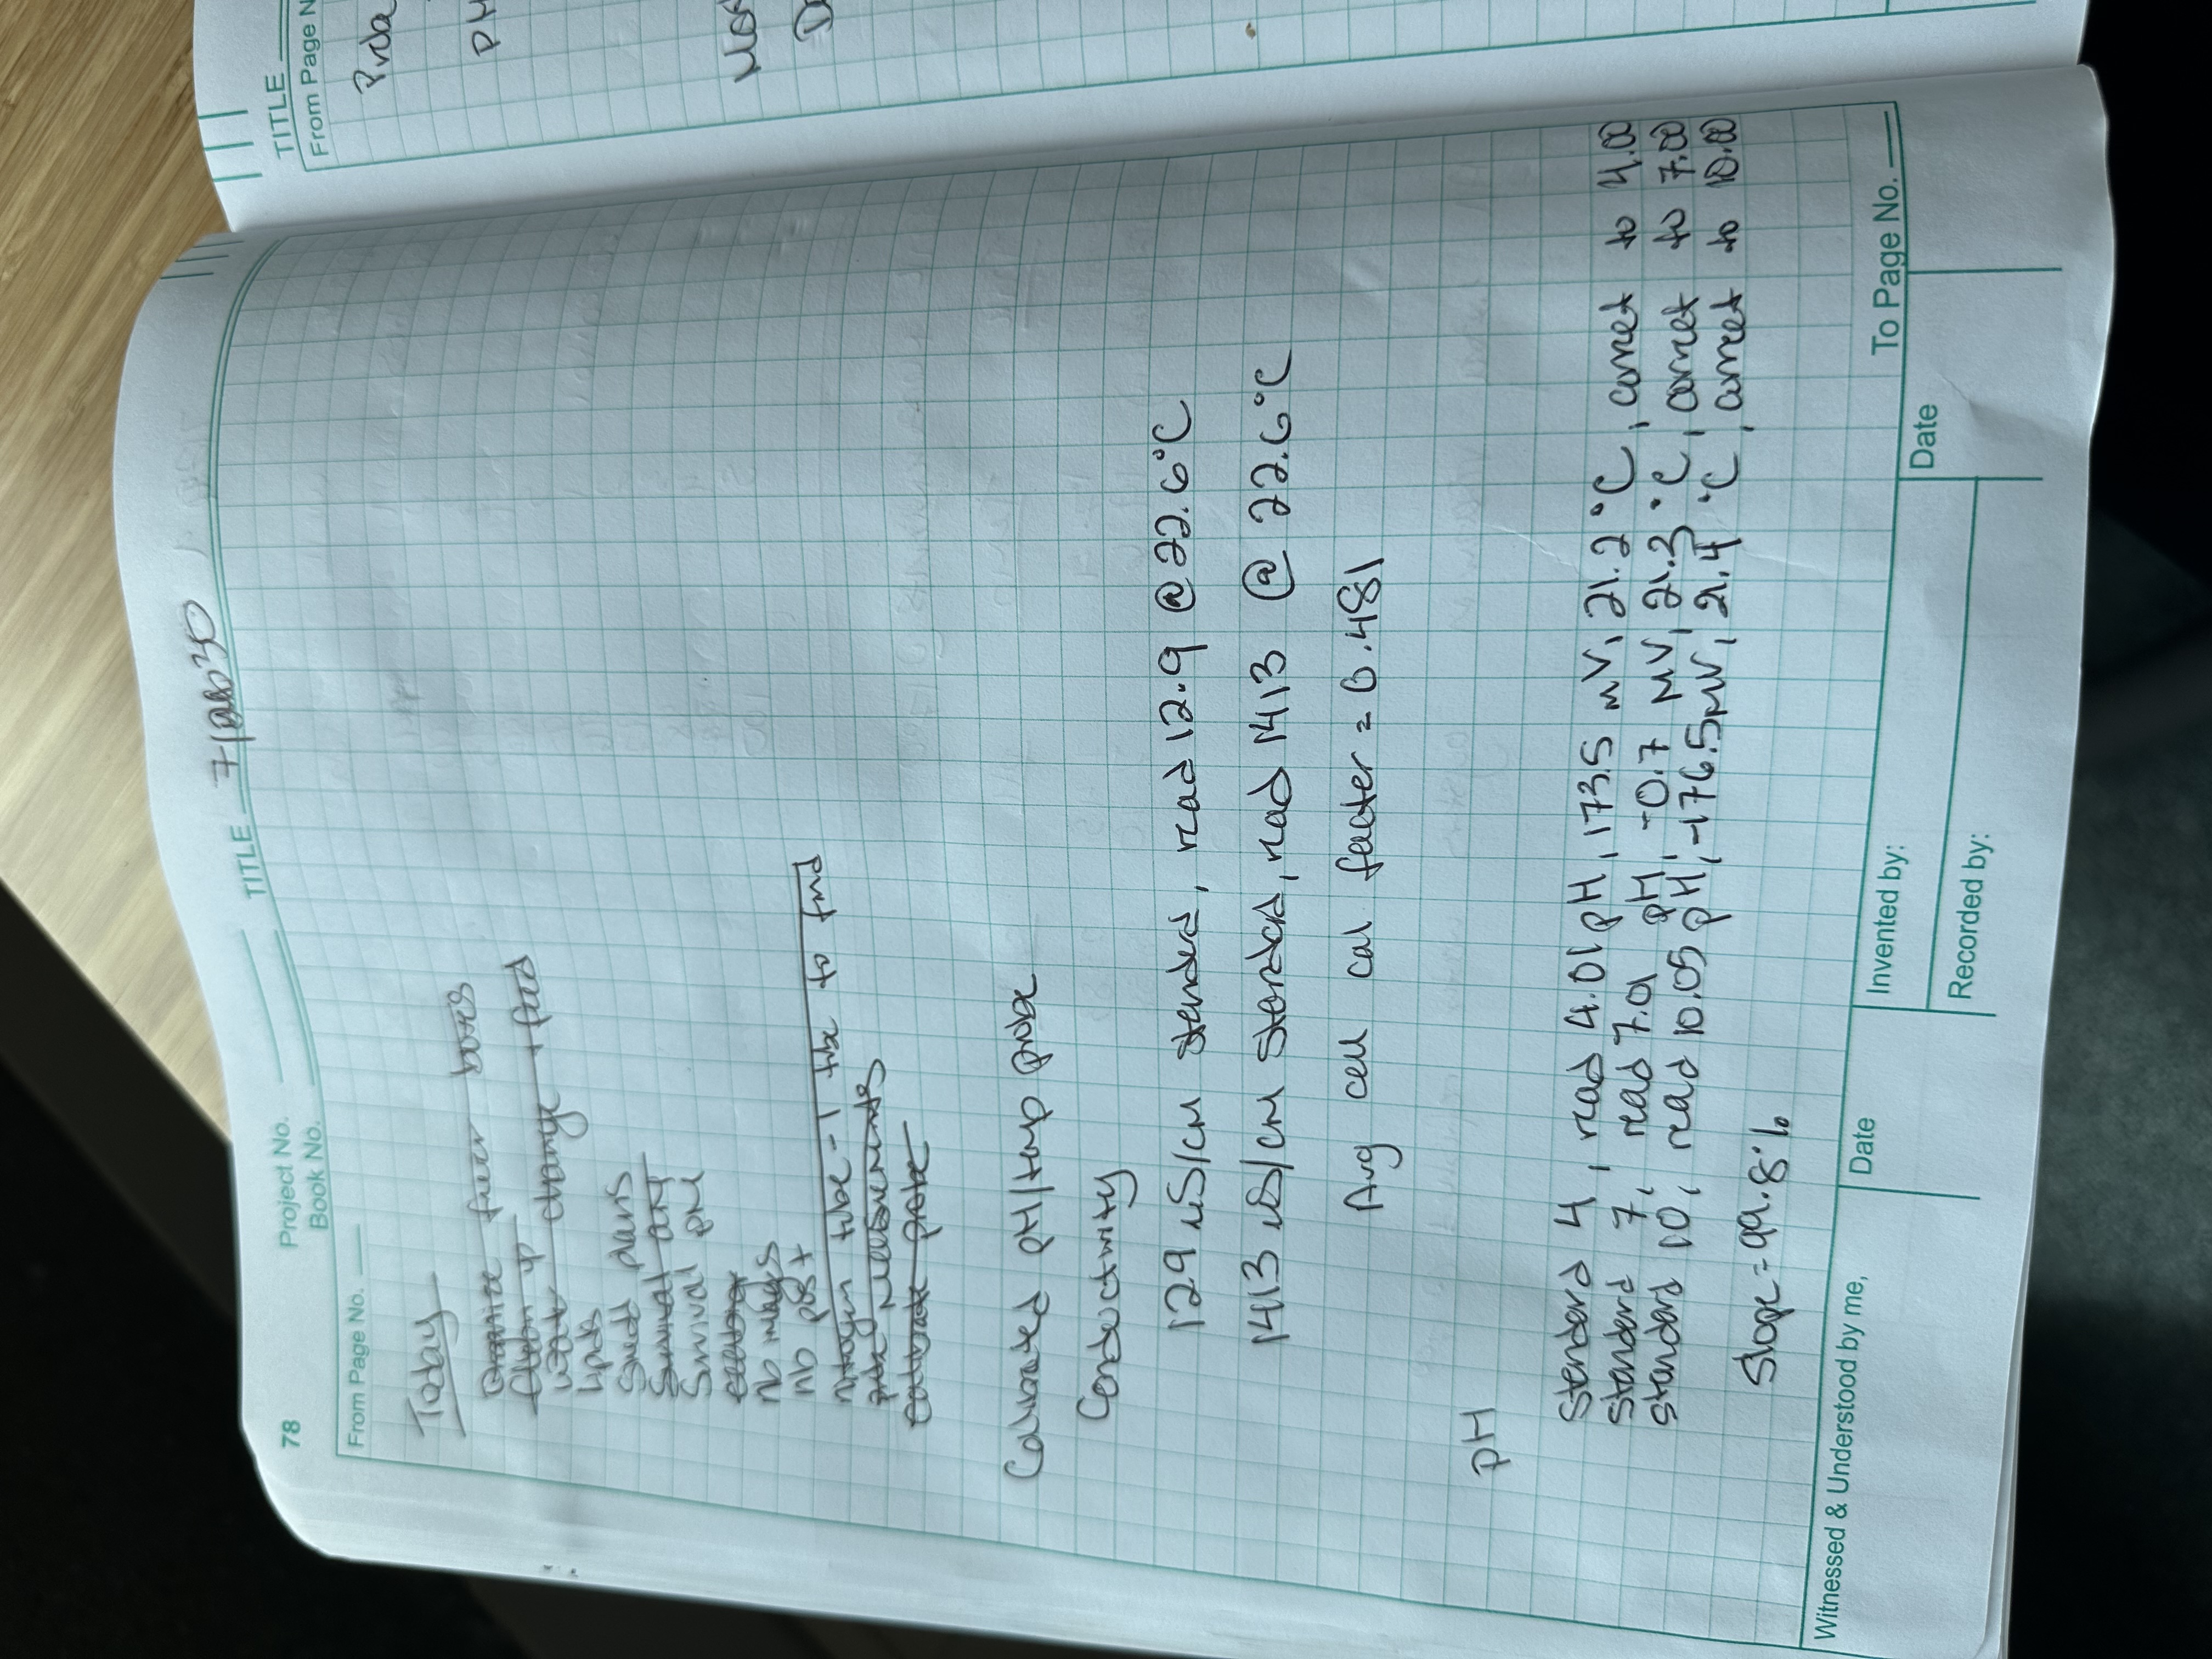 78
Project No.
Book No.
TITLE
From Page No.
Today
Organize freezer boxes
water change + feed
lipids
Smed plans
Survival pml
nb images
nb post
nitrogen tube - 1 tube to find
take measurements
calibrate probe
Calibrated pH/temp probe
Conductivity
129 uS/cm standard, read 12.9 @ 22.6°C
1413 uS/cm standard, read 1413 @ 22.6°C
Avg cell cal factor = 0.481
pH
Standard 4, read 4.01 pH, 173.5 mV, 21.2 °C, correct to 4.00
Standard 7, read 7.01 pH, -0.7 mV, 21.3 °C, correct to 7.00
Standard 10, read 10.05 pH, -176.5 mV, 21.4 °C, correct to 10.00
Slope = 99.8%
To Page No.
Witnessed & Understood by me,
Date
Invented by:
Date
Recorded by:
TITLE
From Page N
Proba
pH